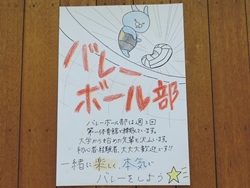 バレー
ボール部
バレーボール部は週3回
第一体育館で練習しています。
大学から始めた先輩も沢山います。
初心者経験者、大大大歓迎です!!
一緒に楽しく、本気で
バレーをしよう